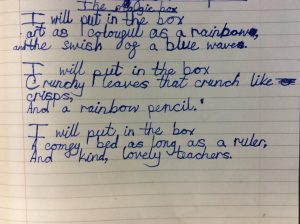 The magic box
I will put in the box
art as colougul as a rainbow,
and the swish og a blue wave.
I will put in the box
Crunchy leaves that crunch like
crisps,
And a rainbow pencil.
I will put in the box
A comgy bed as long as a ruler,
And kind, lovely teachers.